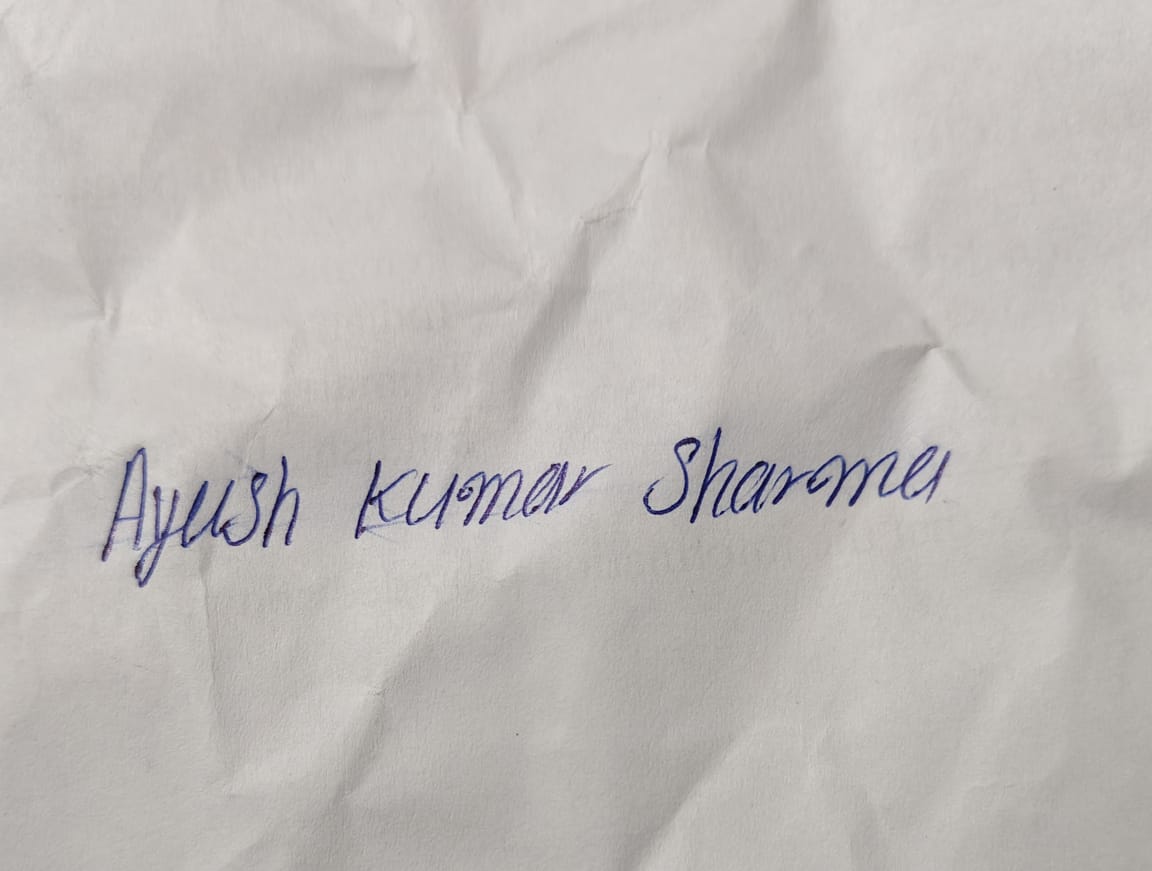 Ayush Kumar Sharma